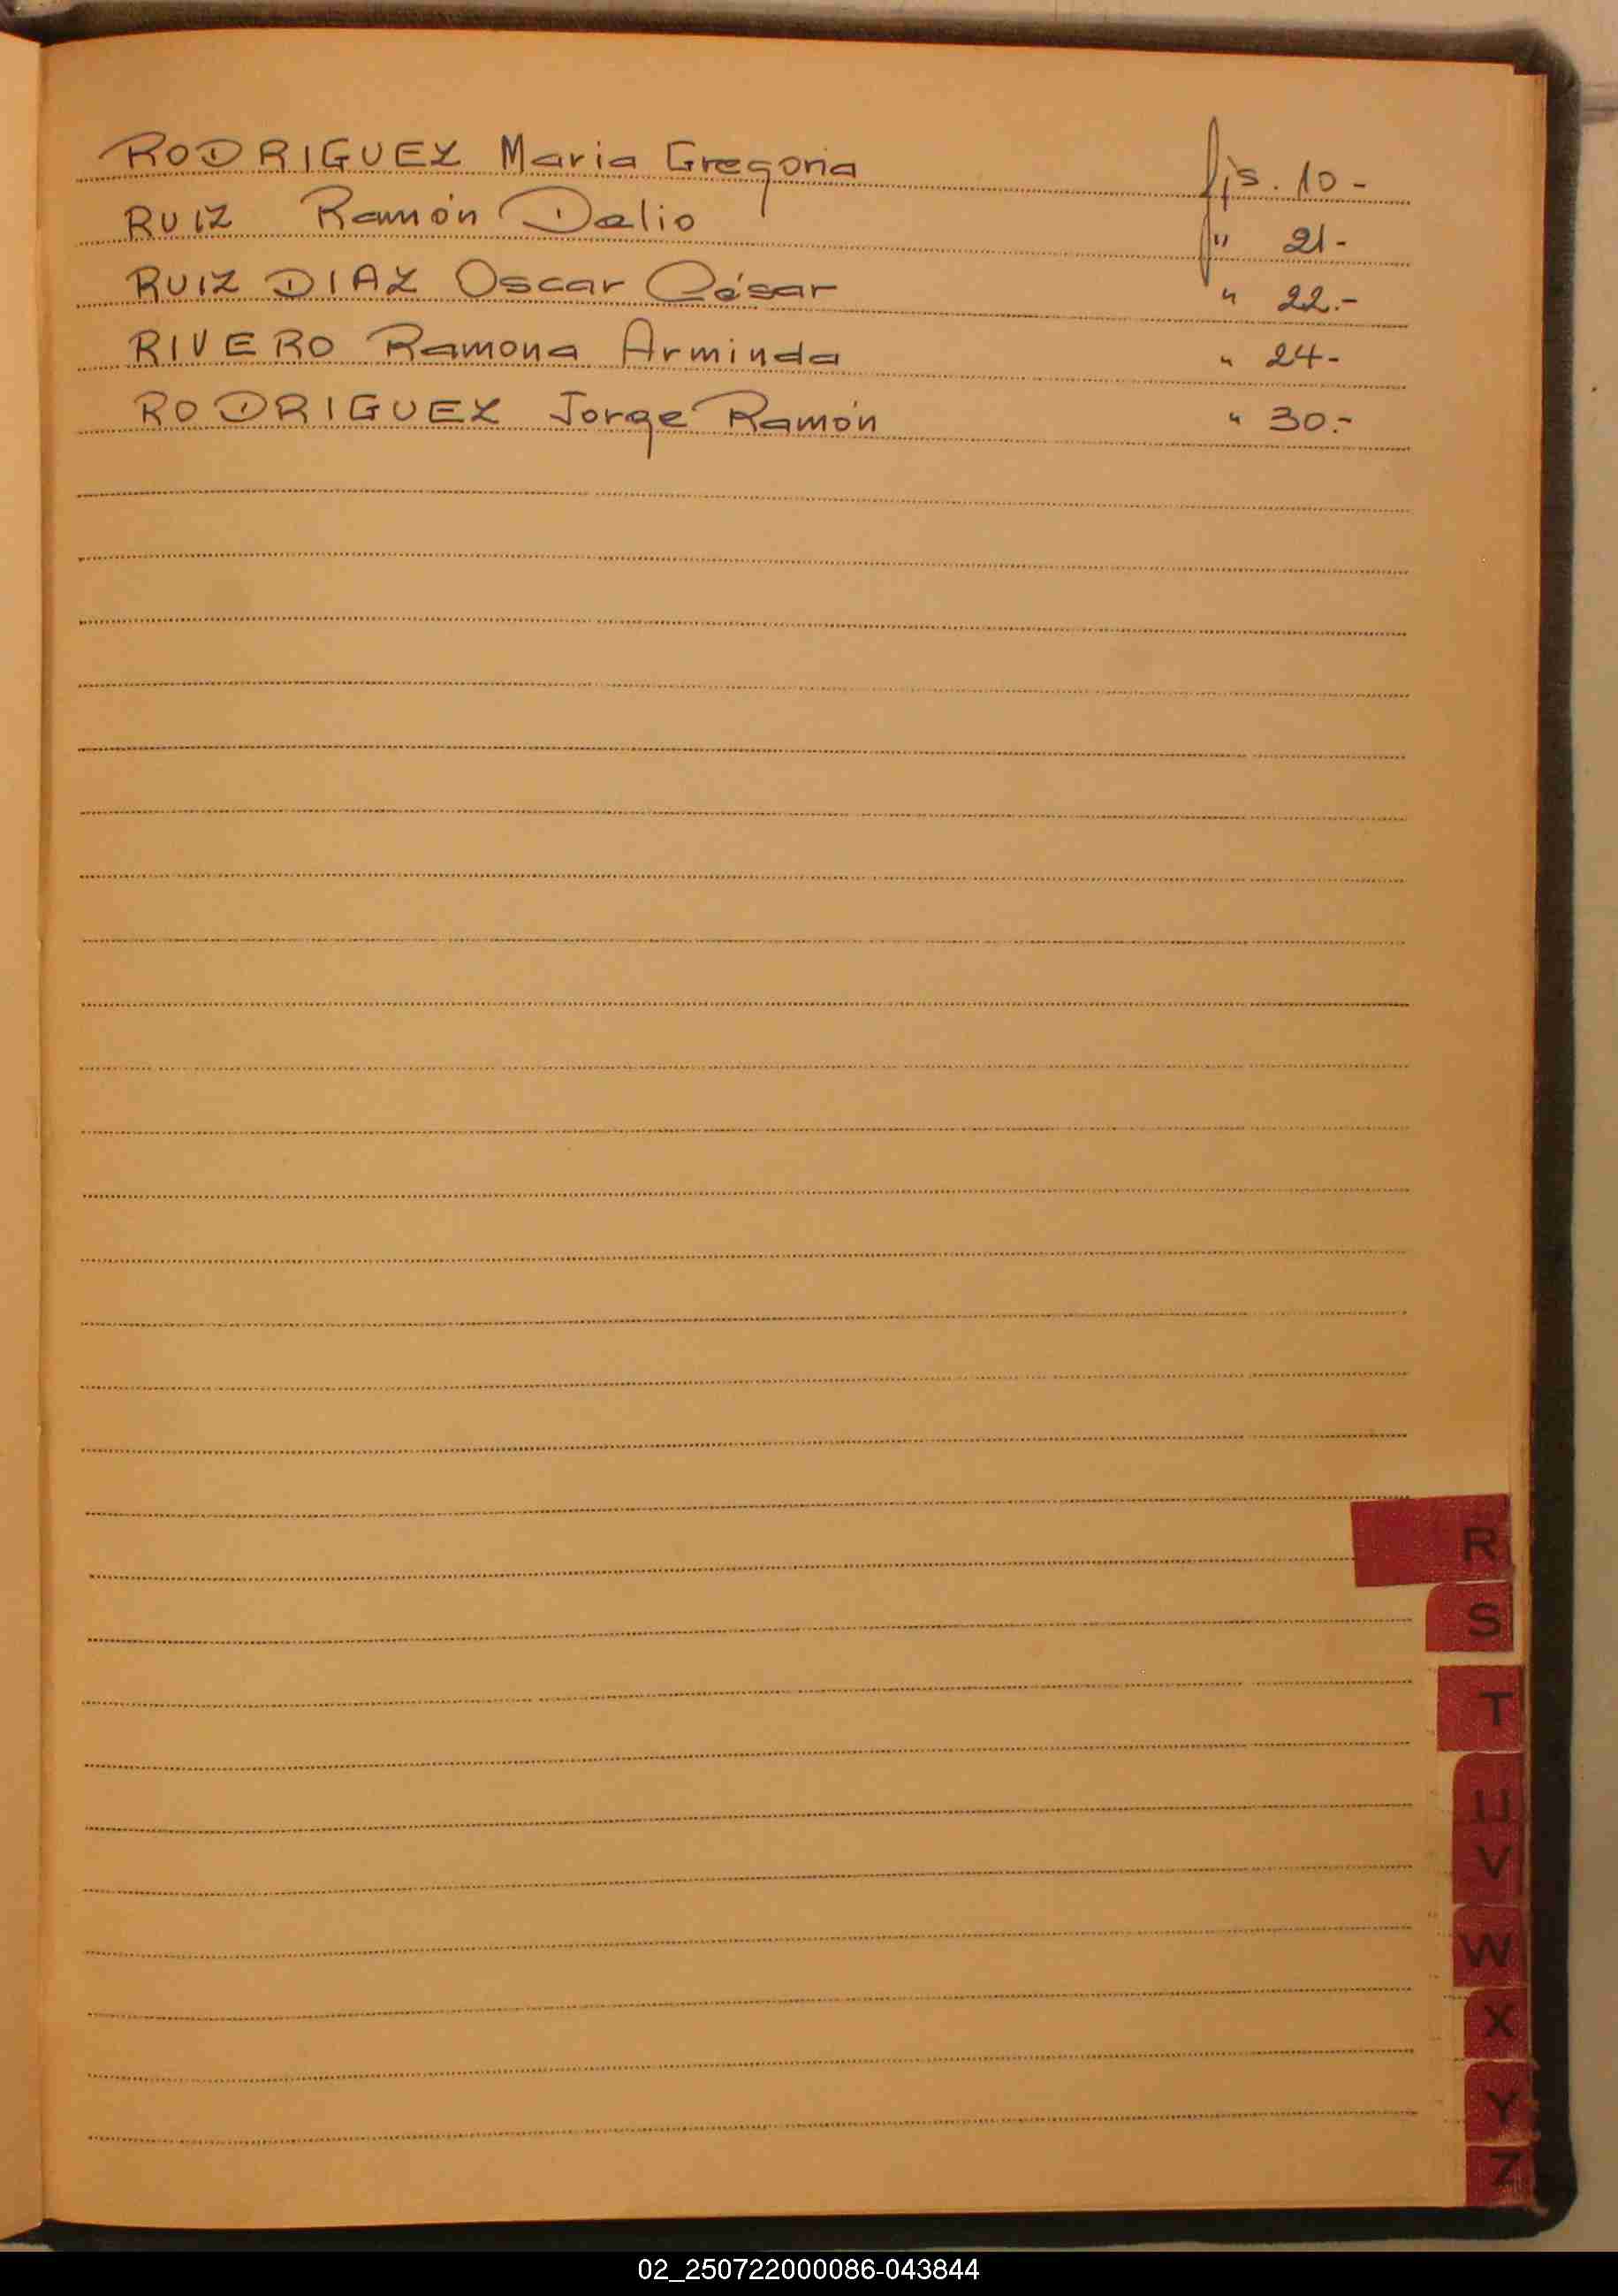 RODRIGUEZ Maria Gregoria fjs. 10-
RUIZ Ramón Delio " 21-
RUIZ DIAZ Oscar César " 22.-
RIVERO Ramona Arminda " 24-
RODRIGUEZ Jorge Ramón " 30.-
R
S
T
U
V
W
X
Y
Z
02_250722000086-043844